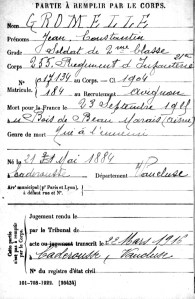 PARTIE À REMPLIR PAR LE CORPS.
Nom GROMELLE
Prénoms Jean Constantin
Grade Soldat de 2me Classe
Corps 255e Régiment d'Infanterie
N° 17134 au Corps. — Cl. 1904
Matricule. 184 au Recrutement Avignon
Mort pour la France le 23 Septembre 1914
au Bois de Beau Marais (Aisne)
Genre de mort Tué à l'ennemi
Né le 21 Mai 1884
à Caderousse Département Vaucluse
Arr' municipal (p' Paris et Lyon),
à défaut rue et N°.
Cette partie n'est pas à remplir par le Corps.
Jugement rendu le
par le Tribunal de
acte ou jugement transcrit le 22 Mars 1916
à Caderousse, Vaucluse
N° du registre d'état civil
101-708-1922. [26434]